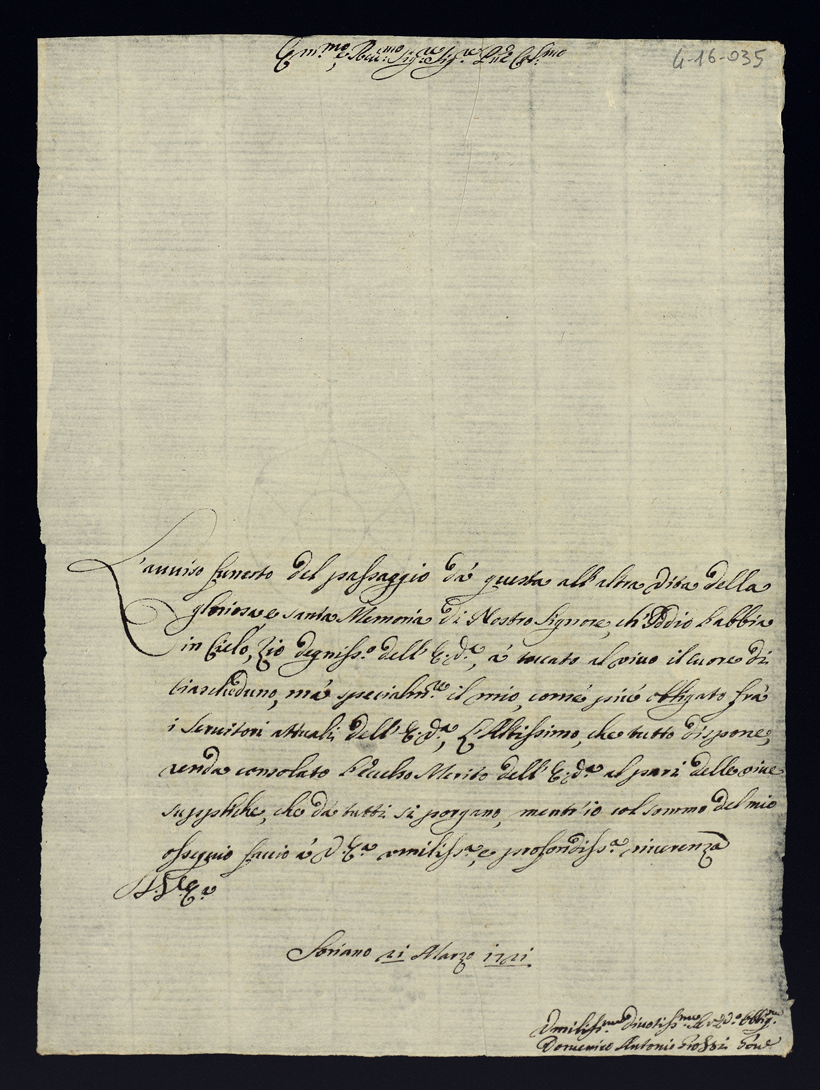 Em.mo, e Rev.mo Sig.re Sig.re P.ne Col.mo
4-16-035
L'auuiso funesto del passaggio dà questa all'altra Vita della
gloriosa, e santa Memoria di Nostro Signore, ch'Iddio l'abbia
in Cielo, Zio degniss.o dell'E: V.a, à toccato al viuo il Cuore di
ciascheduno, mà specialm.te il mio, come più obligato frà
i Seruitori attuali dell'E: V.a, L'Altissimo, che tutto dispone,
renda consolato l'Eccelso Merito dell'E: V.a al pari delle viue
suppliche, che dà tutti si porgano, mentr'io col sommo del mio
ossequio faccio à V: E.a vmiliss.a, e profondiss.a riuerenza
Di V: E.a
Soriano 21 Marzo 1721
Vmiliss.mo Diuotiss.mo Ser.e Oblig.mo
Domenico Antonio